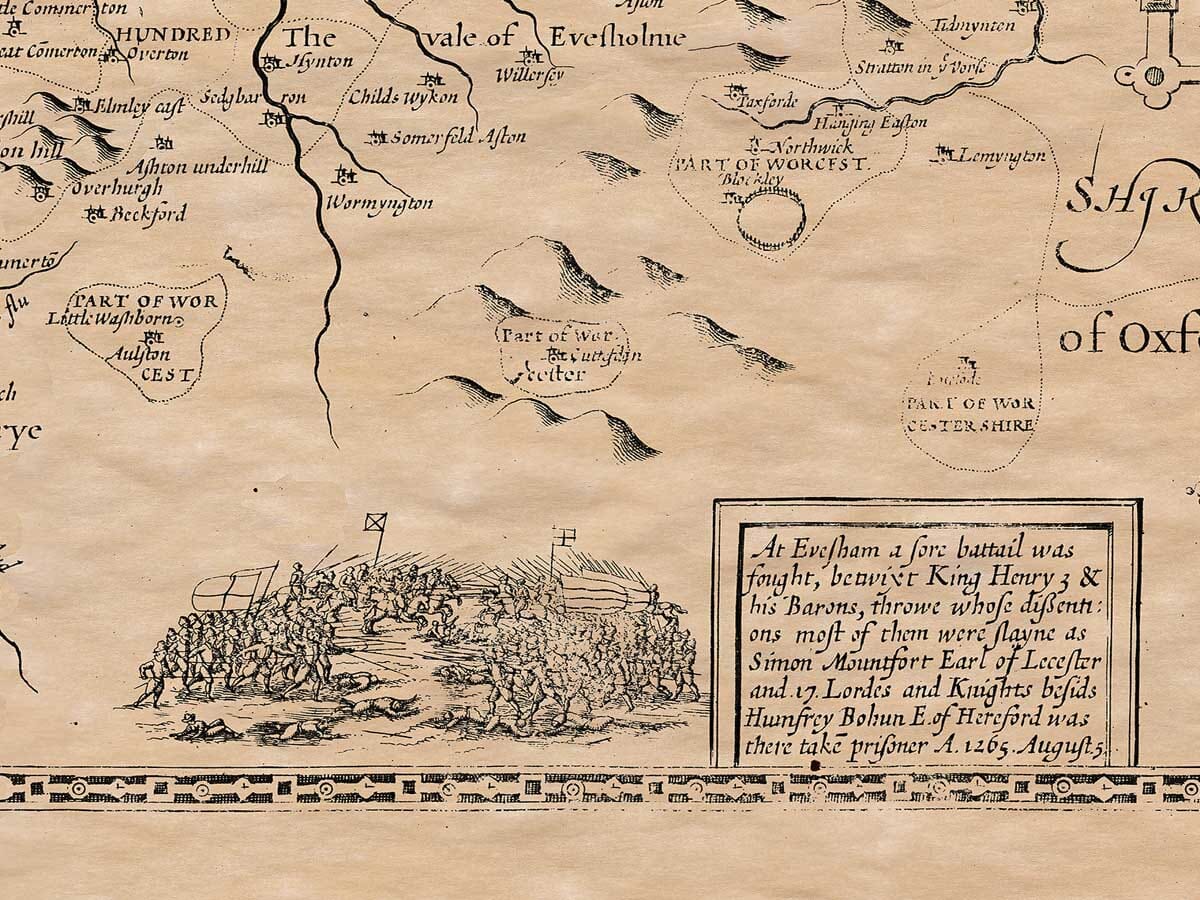 tle Comerton
HUNDRED
The
vale of Evesholme
Tidmynton
eat Cōmerton
Overton
Hynton
Willersey
Stratton in yͤ Vorse
Elmley cast
Sedgbar
ron
Childs wykon
Paxforde
shill
Hanging Easton
on hill
Somerfeld Aston
Northwick
Lemyngton
Ashton underhill
PART OF WORCEST.
Overburgh
Blockley
Wormyngton
SHIR
Beckford
merto
flu
PART OF WOR
Little Washborn
Part of Wor
of Oxf
Aulston
Cuttesdin
CEST
cester
PART OF WOR
CESTERSHIRE
rye
At Evesham a sore battail was
fought, betwixt King Henry 3 &
his Barons, throwe whose dißenti:
ons most of them were slayne as
Simon Mountfort Earl of Lecester
and .17. Lordes and Knights besids
Humfrey Bohun E.of Hereford was
there takē prisoner A. 1265. August.5.